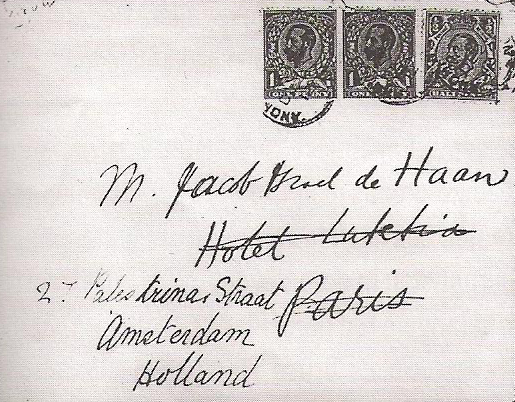 1 ONE PENNY 1 ONE PENNY HALF PENNY
YONY.
M. Jacob Israel de Haan
Hotel Lutetia
27 Palestrina Straat Paris
Amsterdam
Holland